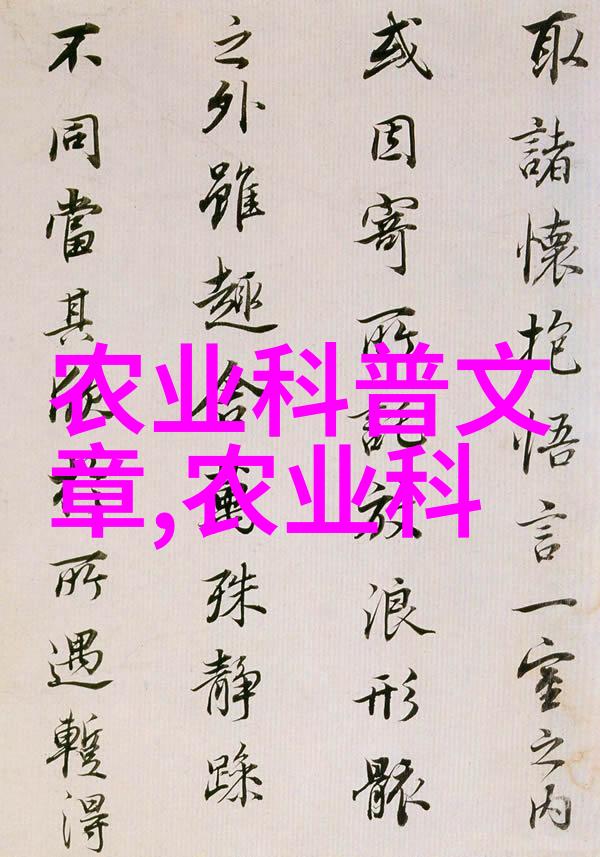 取諸懷抱悟言一室之内
或因寄所託放浪形骸
之外雖趣舍萬殊靜躁
不同當其欣於所遇蹔得
农业科普文
章,农业科